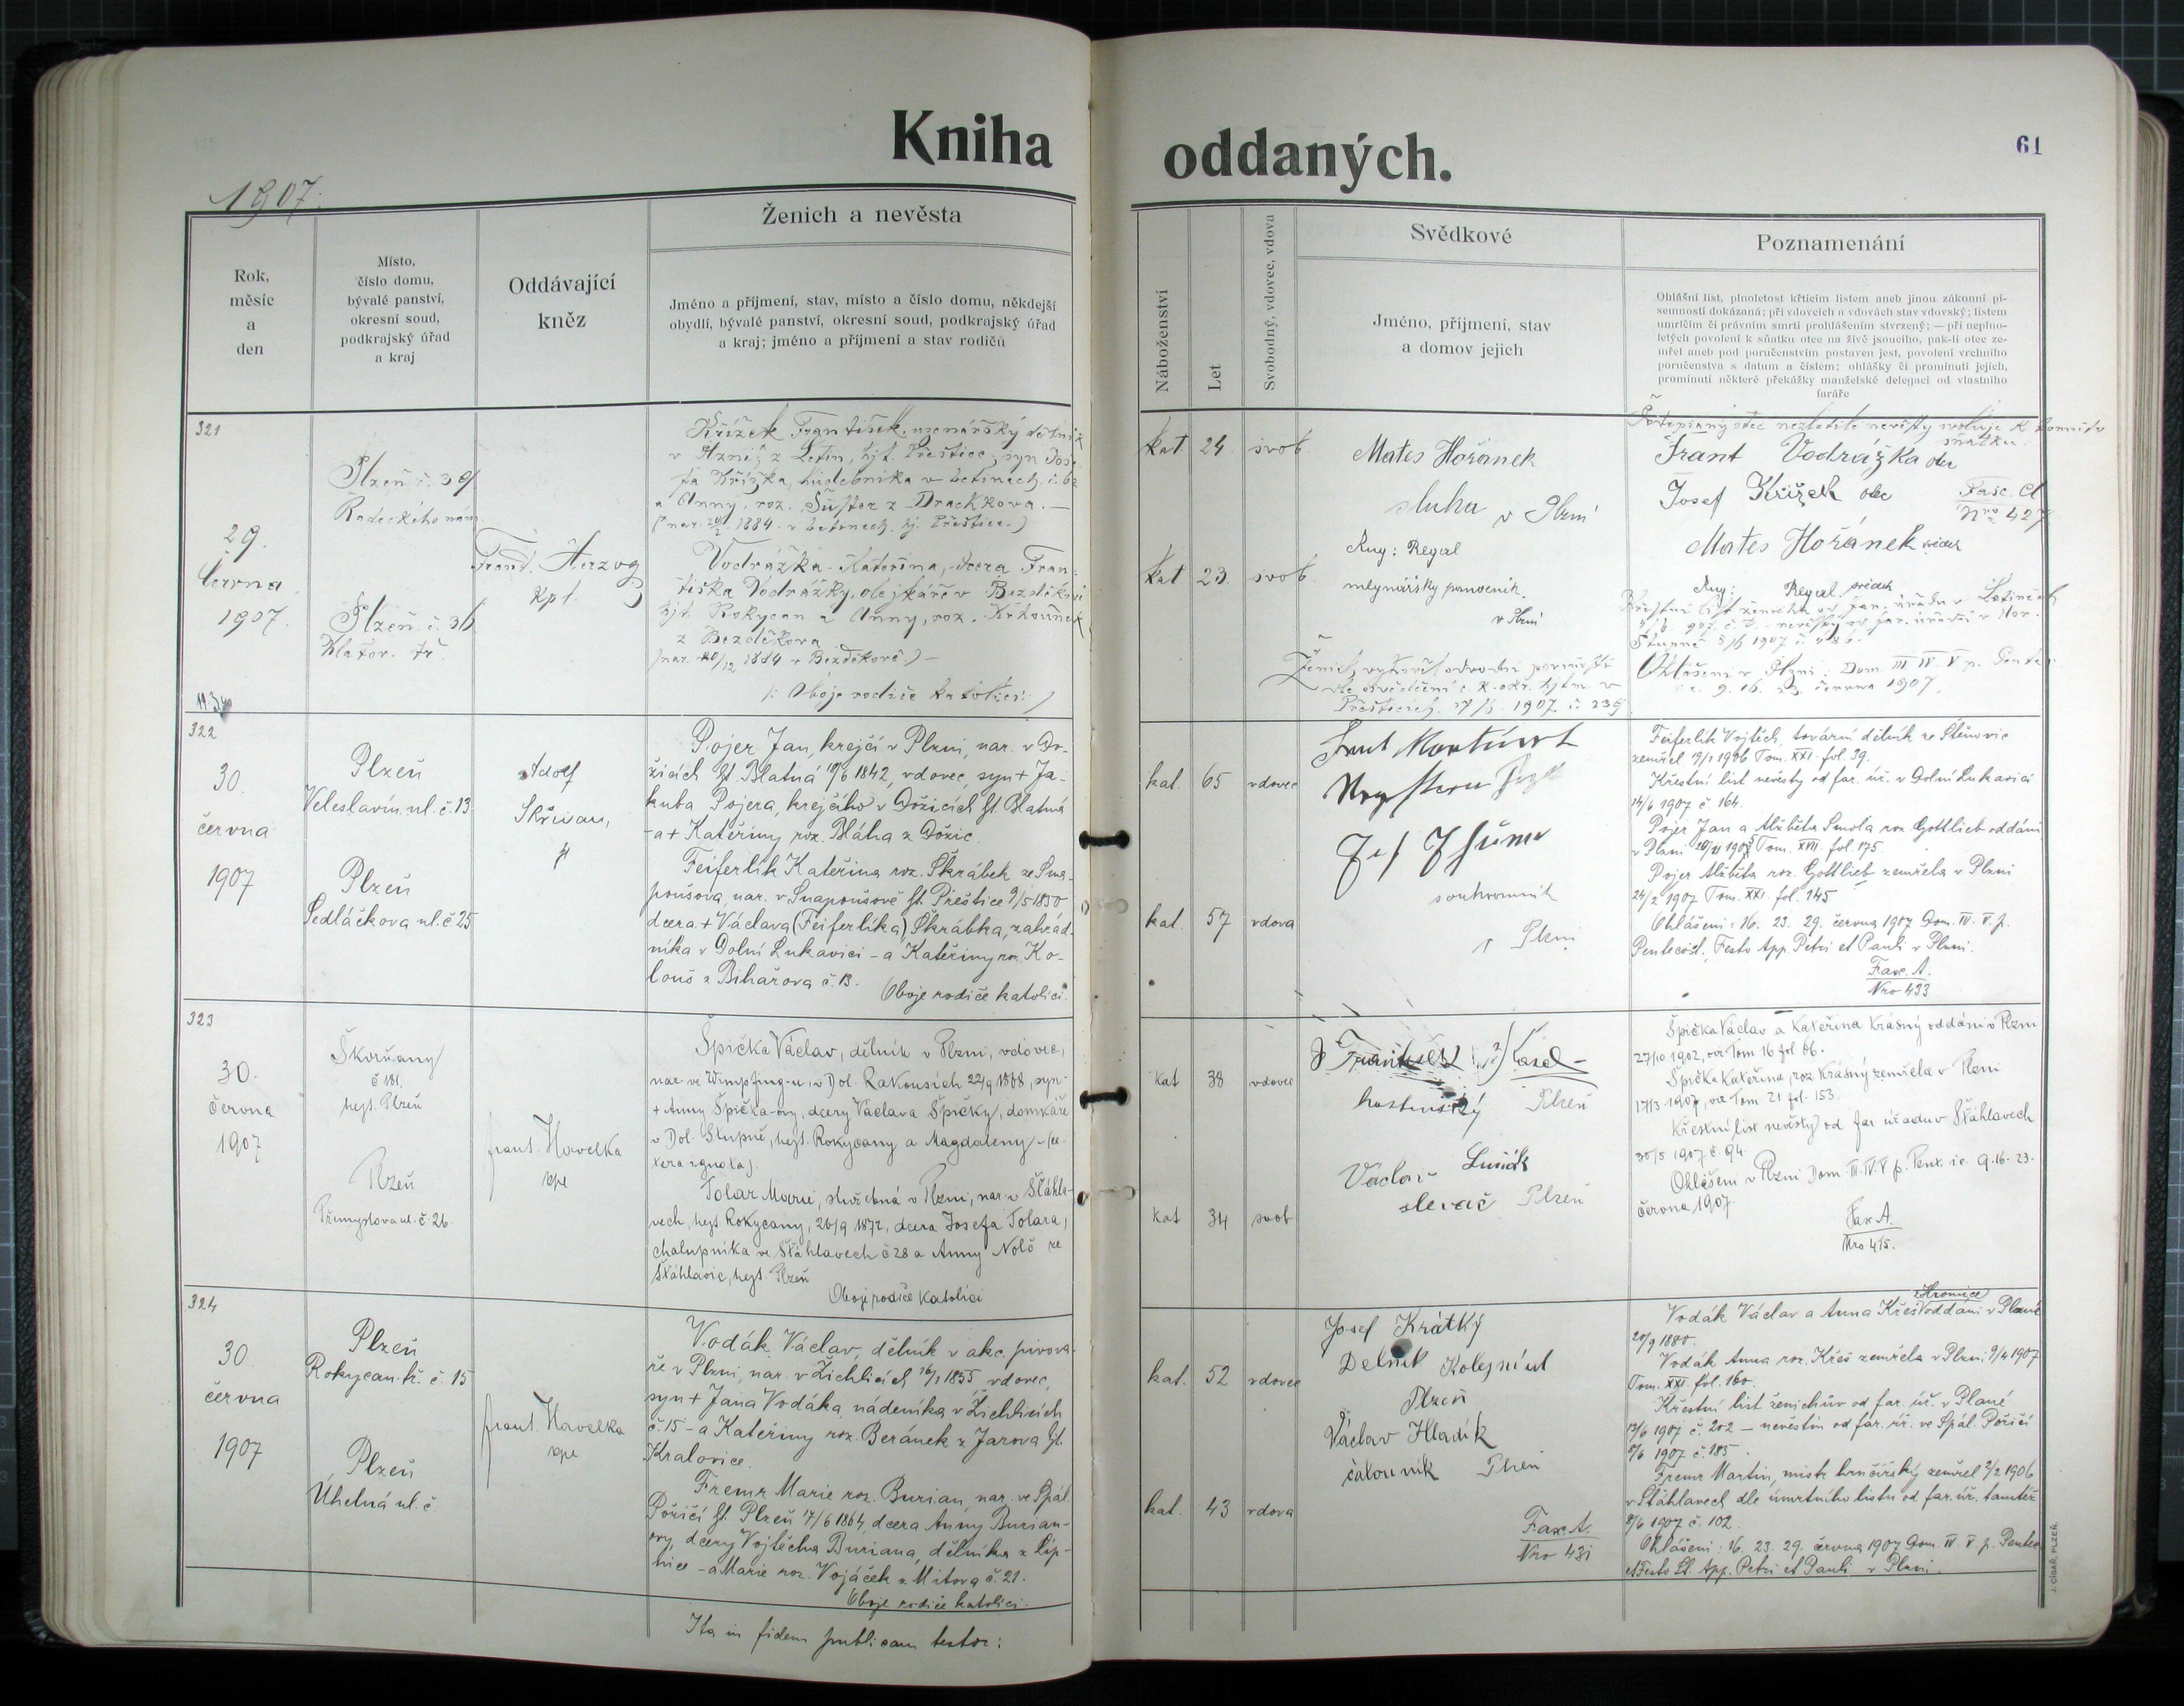 Kniha oddaných.
61
1907.
Rok,
měsíc
a
den
Místo,
číslo domu,
bývalé panství,
okresní soud,
podkrajský úřad
a kraj
Oddávající
kněz
Ženich a nevěsta
Jméno a příjmení, stav, místo a číslo domu, někdejší
obydlí, bývalé panství, okresní soud, podkrajský úřad
a kraj; jméno a příjmení a stav rodičů
Náboženství
Let
Svobodný, vdovec, vdova
Svědkové
Jméno, příjmení, stav
a domov jejich
Poznamenání
Ohlášní list, plnoletost křticím listem aneb jinou zákonní pí-
semností dokázaná; při vdovcích a vdovách stav vdovský; listem
umrlčím či právním smrti prohlášením stvrzený; — při neplno-
letých povolení k sňatku otce na živě jsoucího, pak-li otec ze-
mřel aneb pod poručenstvím postaven jest, povolení vrchního
poručenstva s datum a číslem; ohlášky či prominutí jejich,
prominutí některé překážky manželské delegací od vlastního
faráře
321
29.
června
1907.
Plzeň č. 39
Radeckého nám.
Plzeň č. 36
Klator. tř.
Frant. Herzog
kpl.
Křížek František, uzenářský dělník
v Plzni, z Letin, hjt. Přeštice, syn Jose-
fa Křížka, hudebníka v Letinech č. 62
a Anny, roz. Šuster z Drachkova. —
1884 v Letinech, hj. Přeštice.)
Vodrážka Kateřina, dcera Fran-
tiška Vodrážky, olejkáře v Bezděkově
hjt. Rokycan a Anny, roz.
z Bezděkova
(nar. 20/12 1884 v Bezděkově.) —
(: Oboje rodiče katolíci :)
kat. 24. svob.
kat. 23. svob.
Mates Hořánek
sluha v Plzni
Aug: Regal
mlynářský pomocník
v Plzni
Ženich vykonal odvodní povinnosti
dle osvědčení c. k. okr. hejtm. v
Přešticích 1907 č. 239
Podepsaný otec nezletilé nevěsty svoluje k tomuto
sňatku.
Frant Vodrážka otec
Josef Křížek otec
Fasc. A
Nro 427
Mates Hořánek svědek
Aug: Regal svědek
Ohlášeni v Plzni: Dom. III IV V p. Pent.
9. 16. 23. června 1907.
322
30.
června
1907
Plzeň
Veleslavín. ul. č. 13
Plzeň
Sedláčkova ul. č. 25
Adolf
Skřivan,
Pojer Jan, krejčí v Plzni, nar. v Do-
žicích hjt. Blatná 10/6 1842, vdovec, syn + Ja-
kuba Pojera, krejčího v Dožicích hjt. Blatná
- a + Kateřiny roz. Bláha z Dožic.
Feiferlík Kateřina roz. Škrábek ze Sna-
poušova, nar. v Snapoušově hjt. Přeštice 9/5 1850
dcera + Václava (Feiferlíka) Škrábka, zahrad-
níka v Dolní Lukavici - a Kateřiny roz. Ko-
louš z Bihařova č. 13.
Oboje rodiče katolíci.
kat. 65 vdovec
kat. 57 vdova
soukromník
v Plzni
Feiferlík Vojtěch, tovární dělník ze Štěnovic
zemřel 19/1 1906 Tom. XXI. fol. 39.
Křestní list nevěsty od far. úř. v Dolní Lukavici
14/6 1907 č. 164.
Pojer Jan a Alžběta Smola roz. Gottlieb oddáni
v Plzni Tom. XVII. fol. 175.
Pojer Alžběta roz. Gottlieb zemřela v Plzni
24/2 1907 Tom. XXI. fol. 145
Ohlášeni: 16. 23. 29. června 1907 Dom. IV. V. p.
Pentecost. Festo App. Petri et Pauli v Plzni.
Fasc. A.
Nro 433
323
30.
června
1907
Škvrňany
č 181.
hejt. Plzeň
Plzeň
Přemyslova ul. č 26
Frant. Havelka
kpl
Špička Václav, dělník v Plzni, vdovec,
nar. ve Wimpfing-u, v Dol. Rakousích 22/9 1868, syn
+ Anny Špička-ovy, dcery Václava Špičky, domkáře
v Dol. Stupně, hejt. Rokycany a Magdaleny - (ce-
tera ignota).
Tolar Marie, služebná v Plzni, nar. v Šťáhla-
vech, hejt. Rokycany, 26/9 1872, dcera Josefa Tolara,
chalupníka ve Šťáhlavech č 28 a Anny Nolč ze
Šťáhlavic, hejt. Plzeň
Oboje rodiče katolíci
kat 38 vdovec
kat 34 svob
František
hostinský Plzeň
Václav
slevač Plzeň
Špička Václav a Kateřina Krásný oddáni v Plzni
27/10 1902, viz Tom 16 fol 66.
Špička Kateřina, roz. Krásný zemřela v Plzni
17/3 1907, viz Tom 21 fol. 153.
Křestní list nevěsty od far úřadu v Šťáhlavech
30/5 1907 č. 94.
Ohlášeni v Plzni Dom. III. IV. V p. Pent. i.e. 9. 16. 23.
června 1907.
Fax A.
Nro 415.
324
30.
června
1907
Plzeň
Rokycan. tř. č. 15
Plzeň
Úhelná ul. č
Frant. Havelka
kpl
Vodák Václav, dělník v akc. pivova-
ře v Plzni, nar. v Žichlicích 16/1 1855 vdovec,
syn + Jana Vodáka, nádeníka v Žichlicích
č. 15 - a Kateřiny roz. Beránek z Jarova hjt.
Kralovice.
Fremr Marie roz. Burian, nar. ve Spál.
Poříčí hjt. Plzeň 17/6 1864, dcera Anny Burian-
ovy, dcery Vojtěcha Buriana, dělníka z Lip-
nice - a Marie roz. Vojáček z Mitova č. 21.
Oboje rodiče katolíci.
kat. 52 vdovec
kat. 43 vdova
Josef Krátký
Delník
Plzeň
Václav Hladík
čalouník Plzeň
Fasc. A.
Nro 431
Hromice
Vodák Václav a Anna Křeš oddáni v Plané
20/9 1880.
Vodák Anna roz. Křeš zemřela v Plzni 9/4 1907
Tom. XXI. fol. 160.
Křestní list ženichův od far. úř. v Plané
13/6 1907 č. 202 — nevěstin od far. úř. ve Spál. Poříčí
8/6 1907 č. 185.
Fremr Martin, mistr hrnčířský zemřel 2/2 1906
v Šťáhlavech dle úmrtního listu od far. úř. tamtéž
8/6 1907 č. 102.
Ohlášeni: 16. 23. 29. června 1907 Dom. IV V. p. Pentec.
et Festo St. App. Petri et Pauli v Plzni.
Ita in fidem publicam testor:
J. CÍSAŘ, PLZEŇ.